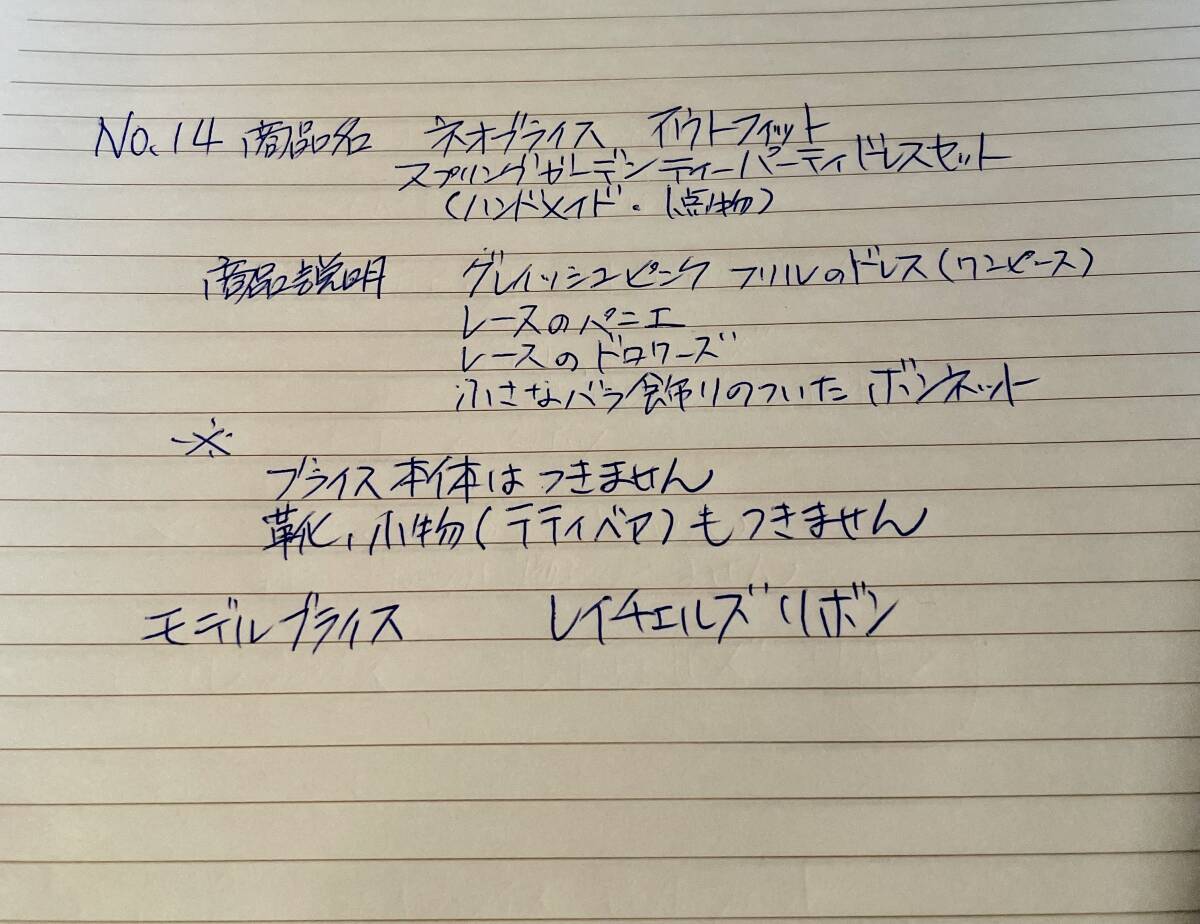 No.14 商品名 ネオブライス アウトフィット
スプリングガーデンティーパーティドレスセット
(ハンドメイド・1点物)
商品説明 グレイッシュピンク フリルのドレス(ワンピース)
レースのパニエ
レースのドロワーズ
小さなバラ飾りのついた ボンネット
※
ブライス本体はつきません
靴、小物(テディベア)もつきません
モデルブライス レイチェルズリボン